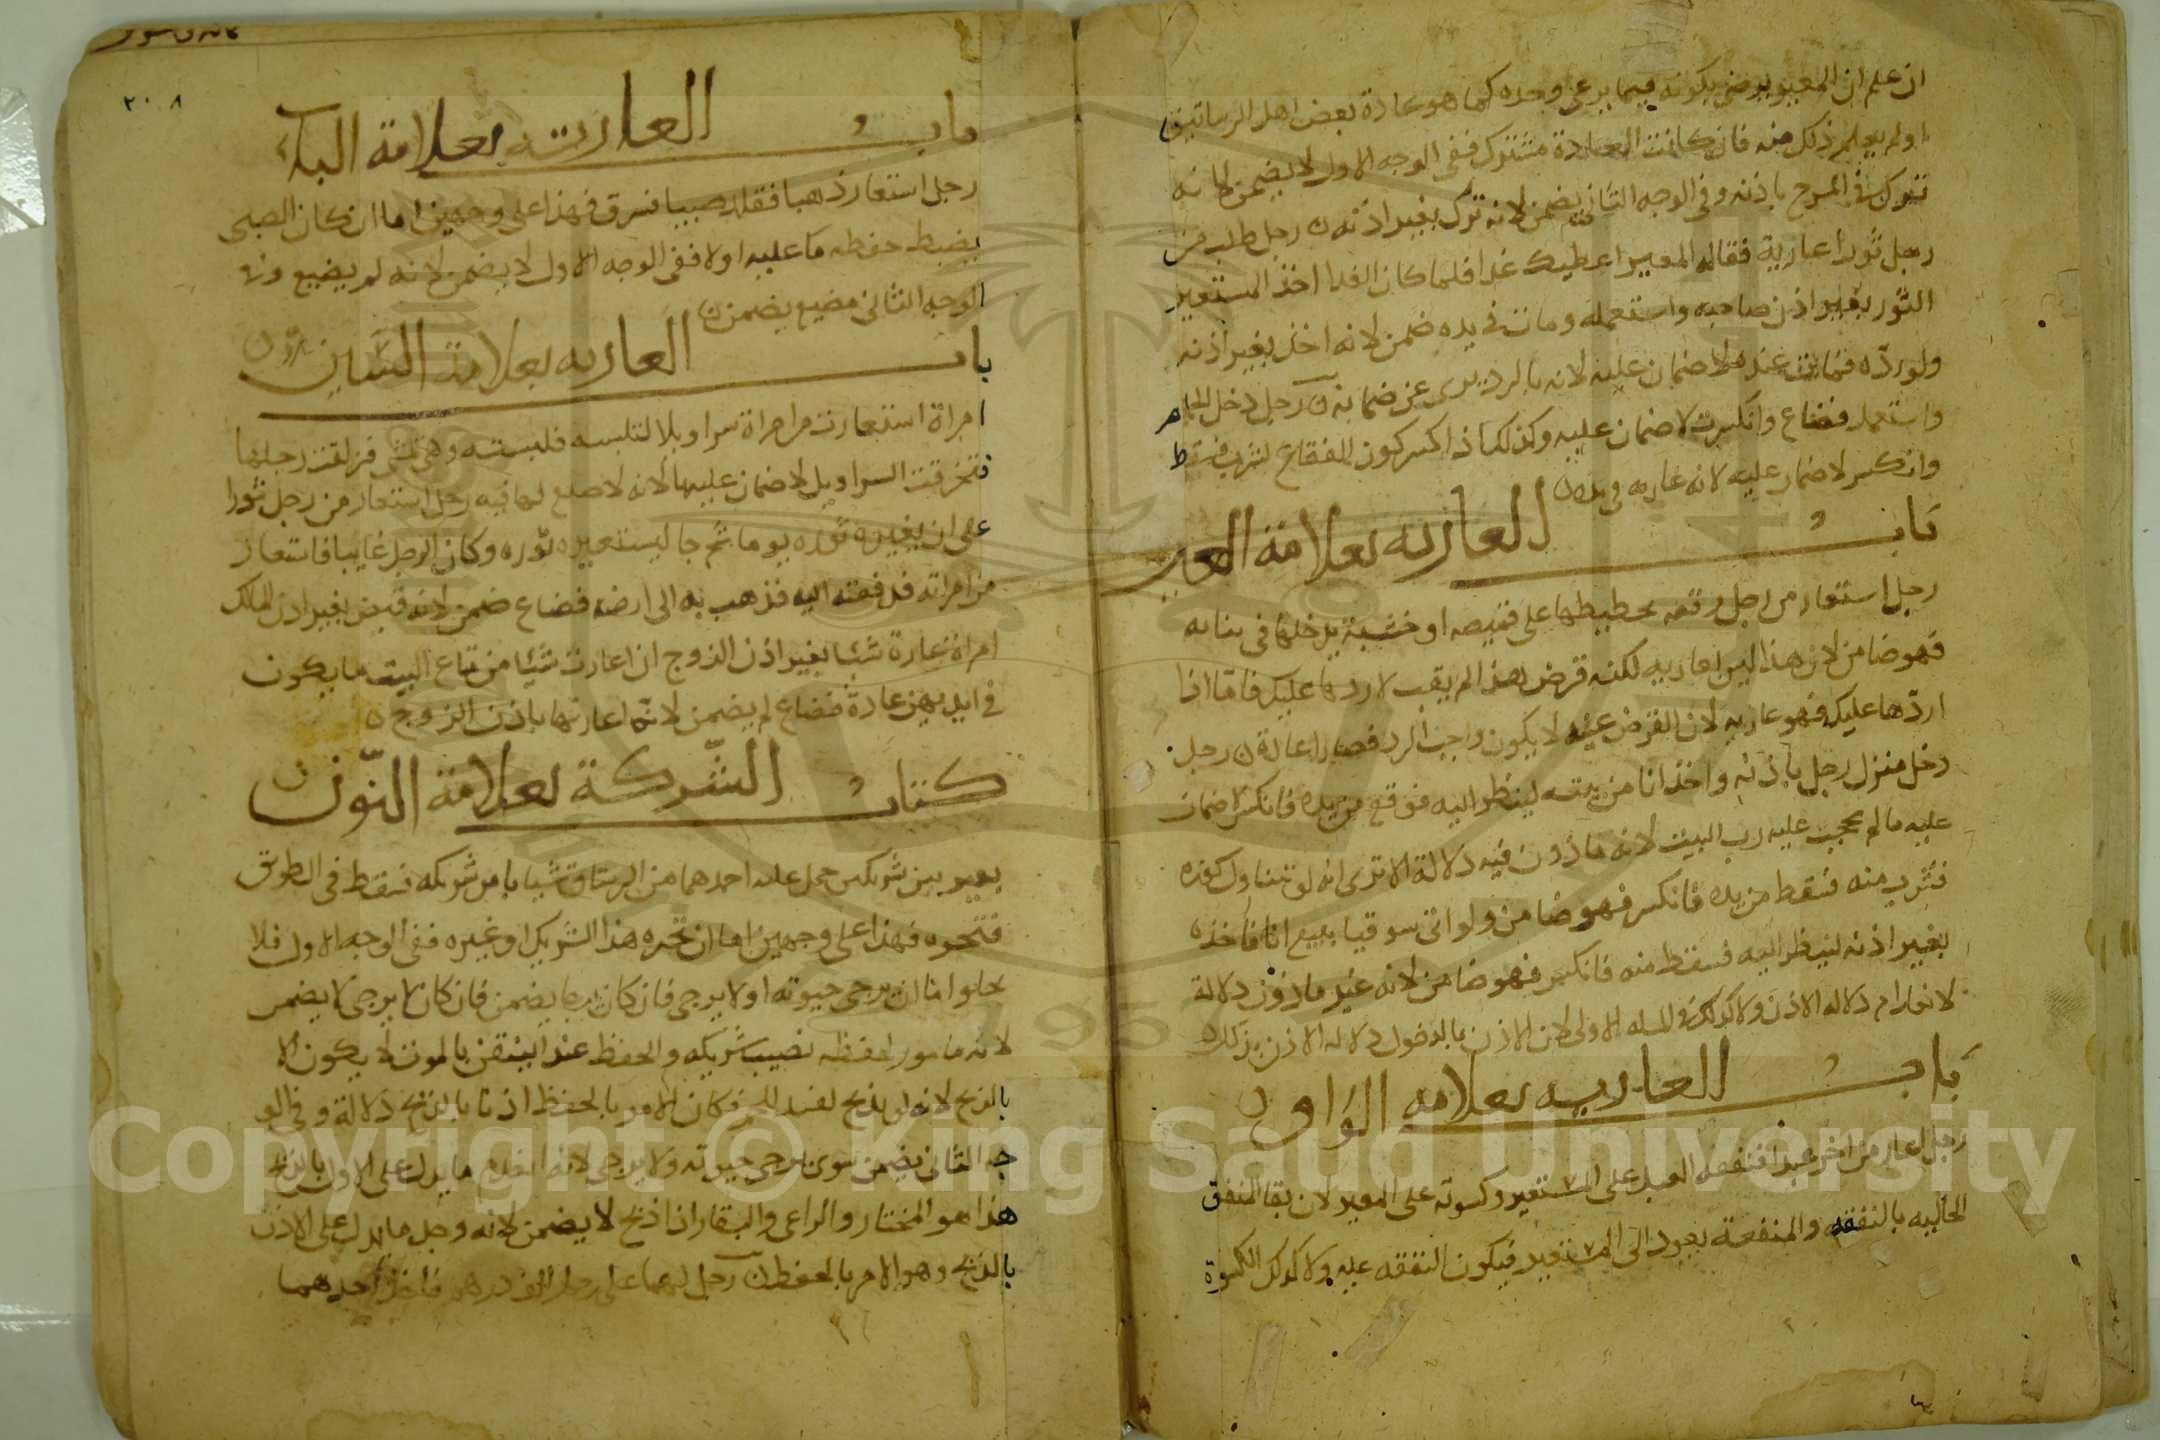 ان علم ان المعير يرضى بكونه فيما يرعى وحده كما هو عادة بعض اهل الرساتيق
او لم يعلم ذلك منه فان كانت العادة مشترك ففي الوجه الاول لا يضمن لانه
تترك في المسرح باذنه وفي الوجه الثاني يضمن لانه ترك بغير اذنه ن رجل طلب من
رجل ثورا عارية فقال المعير اعطيك غدا فلما كان الغد اخذ المستعير
الثور بغير اذن صاحبه واستعمله ومات في يده ضمن لانه اخذ بغير اذنه
ولو ردّه فمات عنده لا ضمان عليه لانه بالرد برى عن ضمانه ن رجل دخل الحمام
واستعمل فضاع وانكسرت لا ضمان عليه وكذلك اذا كسر كون الفقاع ليشرب فسقط
وانكسر لا ضمان عليه لانه عاريه في يده ن
باب العاريه بعلامة العين
رجل استعار من رجل رقعه بخطيطها على قميصه او خشبة يدخلها في بنايه
فهو ضامن لان هذا ليس بعاريه لكنه قرض هذا لم يقب لا ردها عليك فاما اذا
اردّها عليك فهو عاريه لان القرض عينه لا يكون واجب الرد فصار اعارة ن رجل
دخل منزل رجل باذنه واخذ انا من بيته لينظر اليه فوقع من يده فانكسر لا ضمان
عليه ما لم يحجب عليه رب البيت لانه ماذون فيه دلالة الا ترى انه لو تناول كوزه
فشرب منه فسقط من يده فانكسر فهو ضامن ولو اتى سوقيا يبيع انا فاخذه
بغير اذنه لينظر اليه فسقط منه فانكسر فهو ضامن لانه غير ماذون دلالة
لانعدام دلاله الاذن ولا كذلك المسله الاولى لان الاذن بالدخول دلاله الاذن بذلك
باب العاريه بعلامه الواو ن
رجل اعار من اخر عبدا فنفقه العبد على المستعير وكسوته على المعير لان بقا المنفق
الحاليه بالنفقه والمنفعة يعود الى المستعير فيكون النفقه عليه ولا كذلك الكسوة
٢٠٨
باب العاريه بعلامة الباء
رجل استعار ذهبا فقلد صبيا فسرق فهذا على وجهين اما ان كان الصبى
يضبط حفظه ما عليه او لا ففي الوجه الاول لا يضمن لانه لم يضيع وفي
الوجه الثاني مضيع يضمن ن
باب العاريه بعلامة السين ن
امراة استعارت من امراة سراويلا لتلبسه فلبسته وهي تمشى فزلقت رجلها
فتخرقت السراويل لا ضمان عليها لانه لا صنع لها فيه رجل استعار من رجل ثورا
على ان يعيره ثوره يوما ثم جا ليستعيره ثوره وكان الرجل غايبا فاستعار
من امراته فدفعته اليه فذهب به الى ارضه فضاع ضمن لانه قبض بغير اذن المالك
امراة عارة شيا بغير اذن الزوج ان اعارت شيا من متاع البيت ما يكون
في ايديهن عادة فضاع لم يضمن لانه اعارتها باذن الزوج ن
كتاب الشركة بعلامة النّون ن
بعير بين شريكين حمل عليه احدهما من الرستاق شيا بامر شريكه فسقط في الطريق
فنحره فهذا على وجهين اما ان نحره هذا الشريك او غيره ففي الوجه الاول فلا
يخلوا اما ان يرجى حيوته او لا يرجى فان كان يرجى يضمن فان كان لا يرجى لا يضمن
لانه مامور بحفظه نصيب شريكه والحفظ عند التيقن بالموت لا يكون الا
بالذبح لانه لو لم يذبح لفسد اللحم فكان الامر بالحفظ اذنا بالذبح دلالة وفي الو
جه الثاني يضمن سوى يرجى حيوته ولا يرجى لانه انعدم ما يدل على الاول بالذبح
هذا هو المختار والراعى والبقار اذا ذبح لا يضمن لانه وجد ما يدل على الاذن
بالذبح وهو الامر بالحفظ ن رجل لهما على رجل الف درهم فاخذ احدهما
Copyright © King Saud University
1957